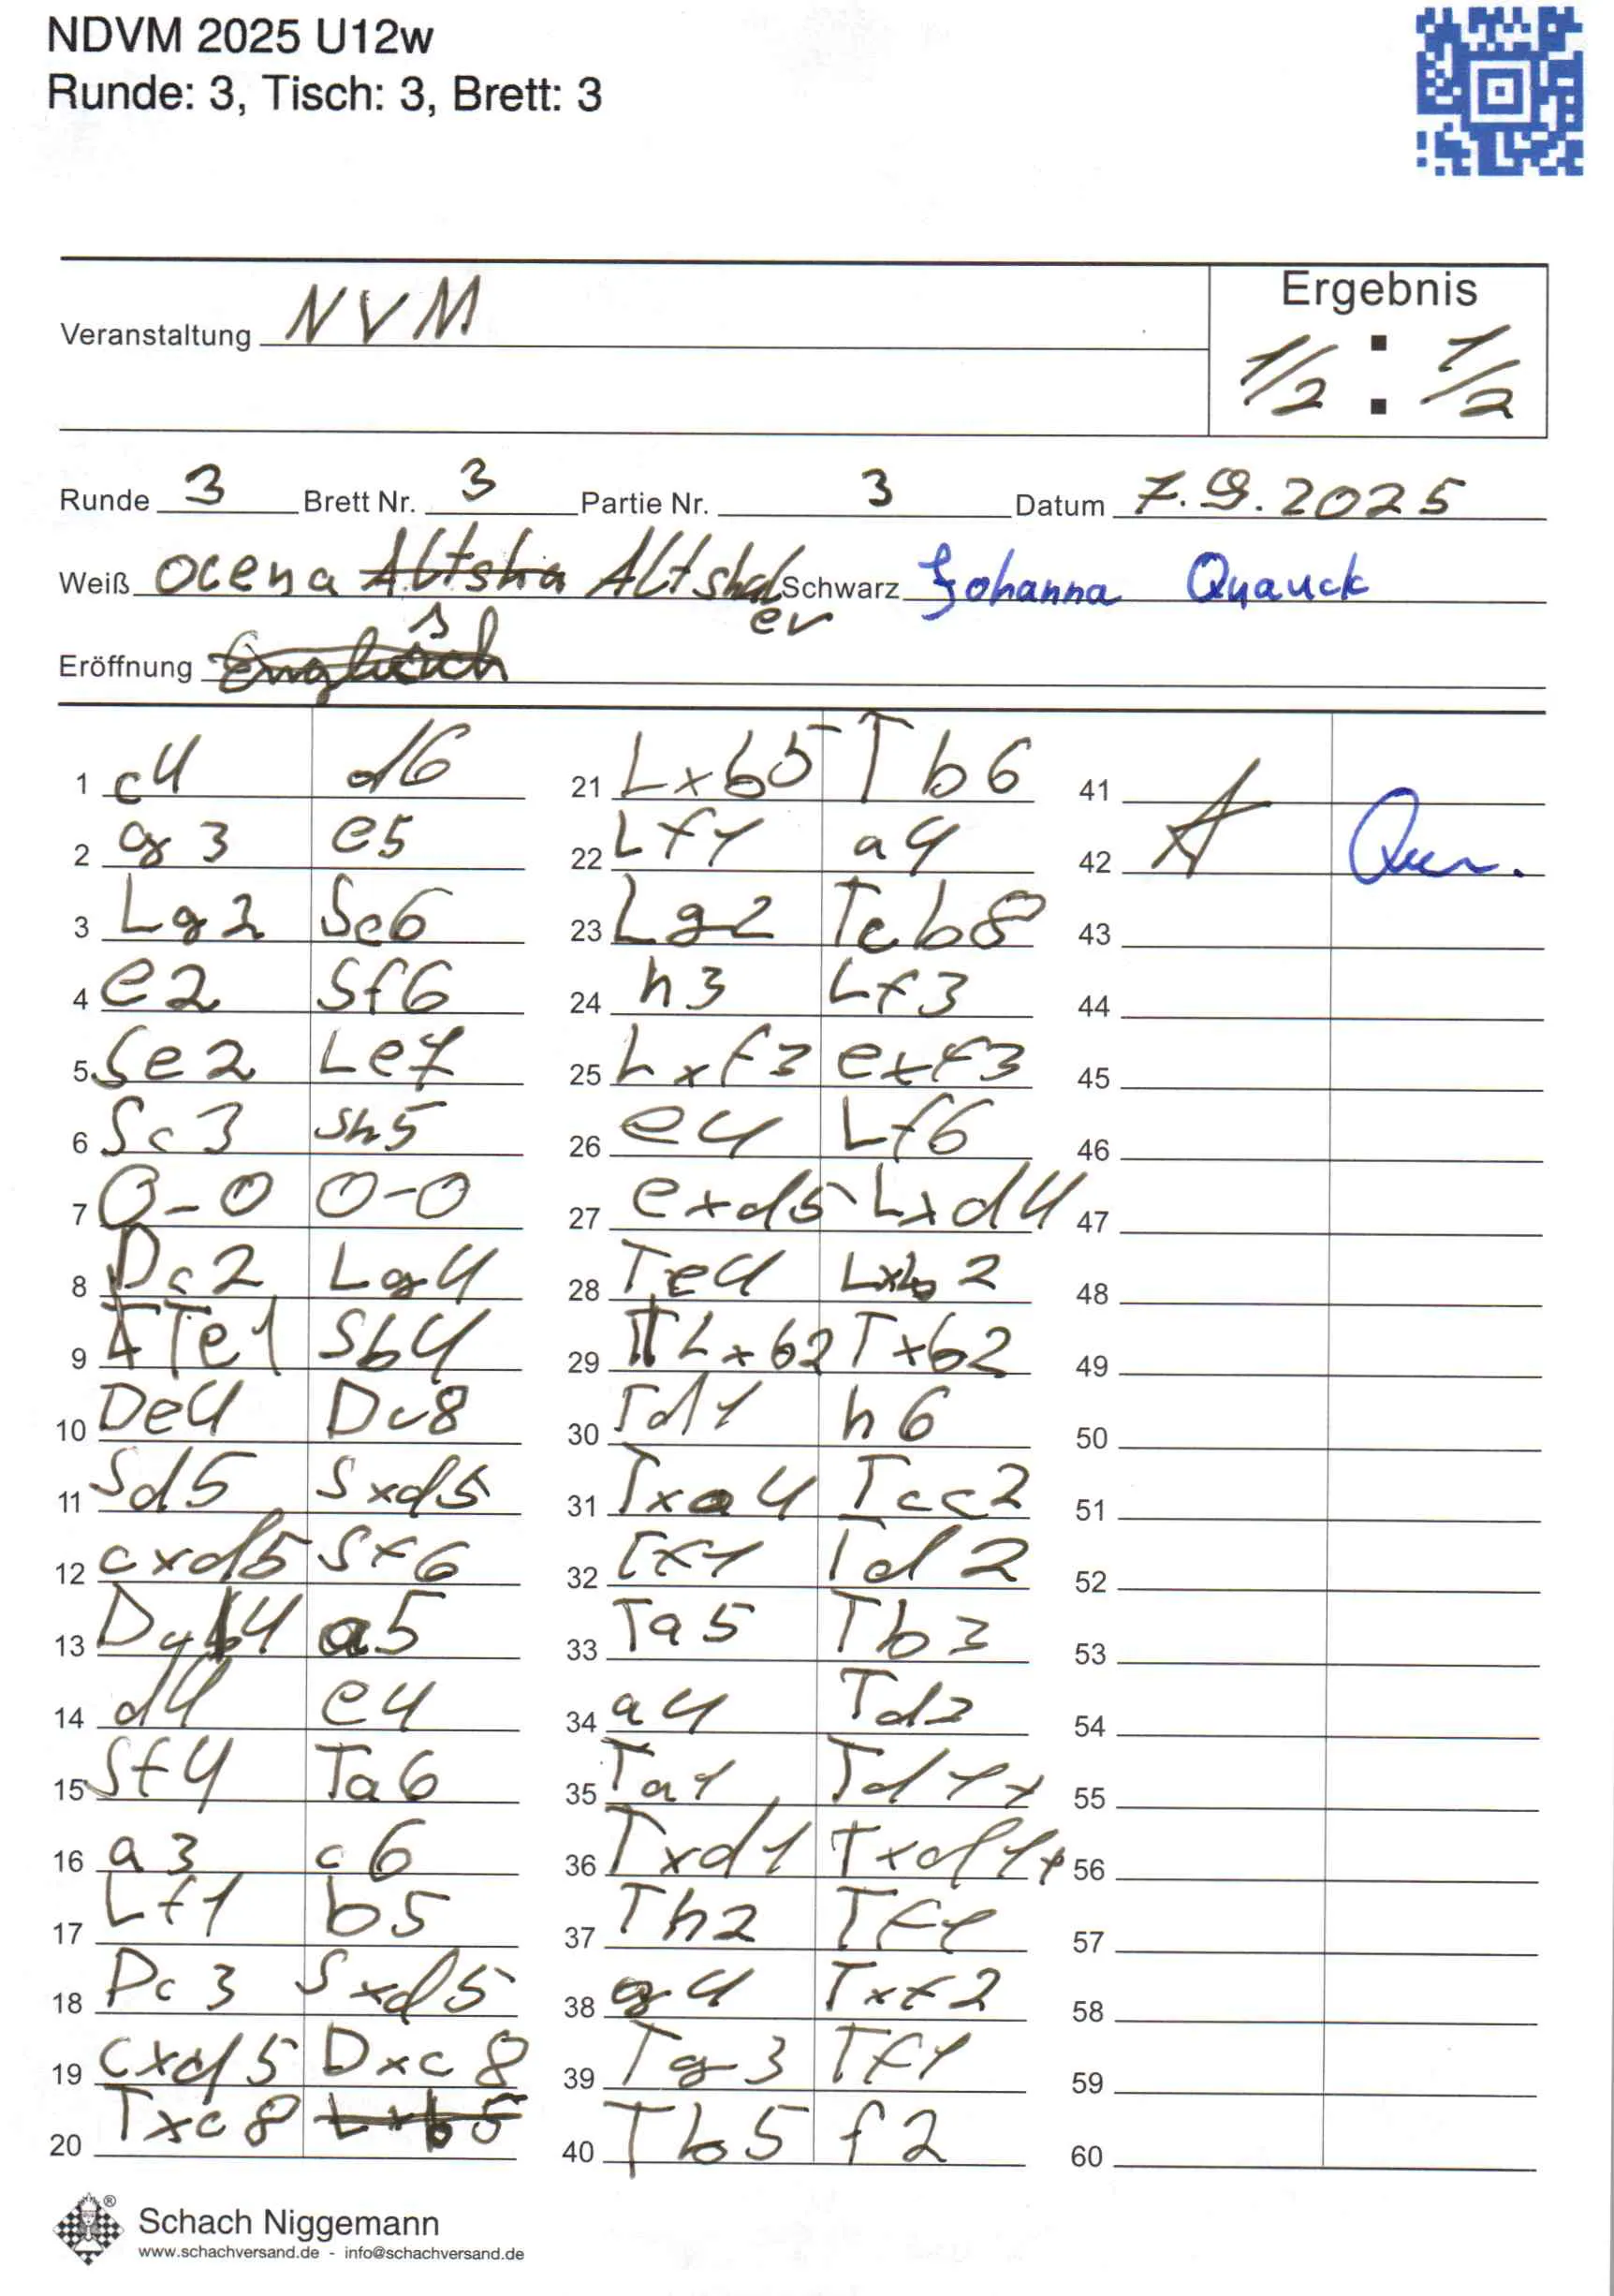 NDVM 2025 U12w
Runde: 3, Tisch: 3, Brett: 3
Veranstaltung NVM
Ergebnis
1/2 : 1/2
Runde 3 Brett Nr. 3 Partie Nr. 3 Datum 7.9.2025
Weiß Ocena Altsha Altshaler Schwarz Johanna Quauck
Eröffnung Englisch
1 c4 d6 21 Lxb5 Tb6 41
2 g3 e5 22 Lf1 a4 42
3 Lg2 Sc6 23 Lg2 Tcb8 43
4 e2 Sf6 24 h3 Lf3 44
5 Se2 Le7 25 Lxf3 exf3 45
6 Sc3 Sh5 26 e4 Lf6 46
7 0-0 0-0 27 exd5 Lxd4 47
8 Dc2 Lg4 28 Te4 Lxb2 48
9 Te1 Sb4 29 Lxb2 Txb2 49
10 De4 Dc8 30 Td1 h6 50
11 Sd5 Sxd5 31 Txa4 Tcc2 51
12 cxd5 Sf6 32 Tf1 Td2 52
13 Db4 a5 33 Ta5 Tb3 53
14 d4 e4 34 a4 Td3 54
15 Sf4 Ta6 35 Ta1 Td1+ 55
16 a3 c6 36 Txd1 Txd1+ 56
17 Lf1 b5 37 Th2 Tf1 57
18 Dc3 Sxd5 38 g4 Txf2 58
19 cxd5 Dxc8 39 Tg3 Tf1 59
20 Txc8 Lxb5 40 Tb5 f2 60
Schach Niggemann
www.schachversand.de - info@schachversand.de